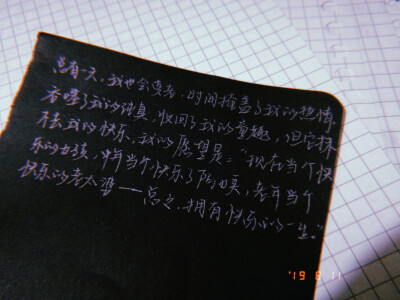 总有一天,我也会变老,时间掩盖了我的热情,
吞噬了我的纯真,收回了我的童趣,但它抹
不去我的快乐,我的愿望是:“现在当个快
乐的女孩,中年当个快乐的阿姨,老年当个
快乐的老太婆——总之,拥有快乐的一生。”
'19 8 11